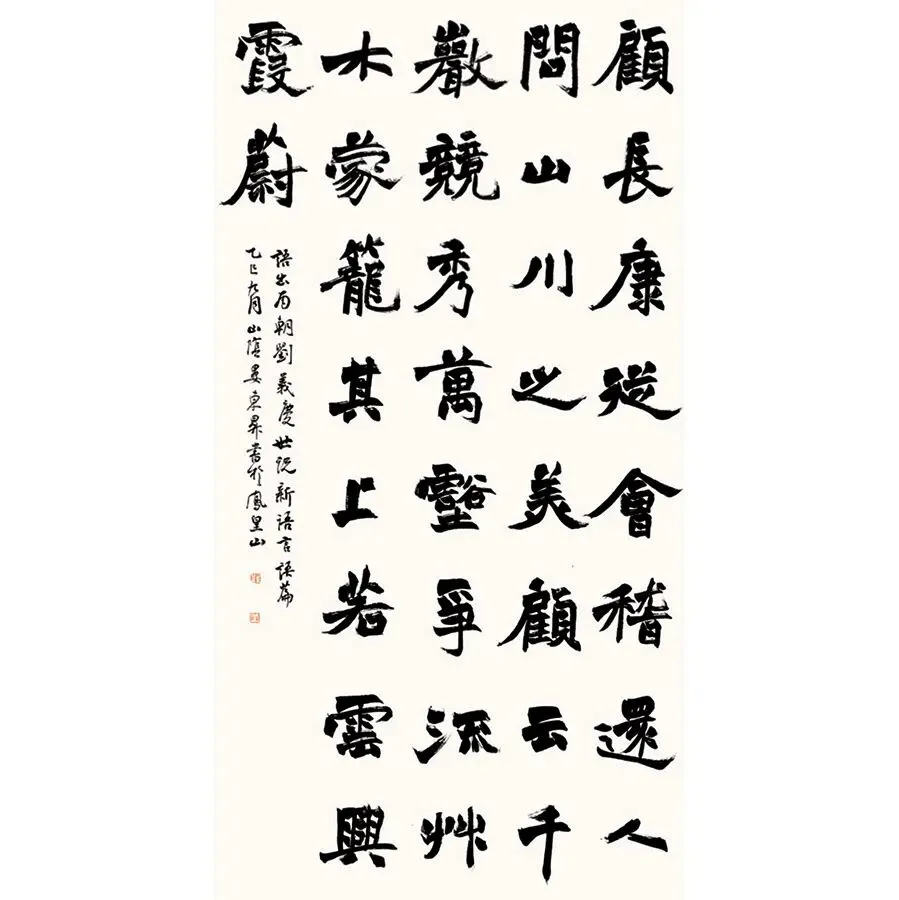 顧長康從會稽還人
問山川之美顧云千
巖競秀萬壑爭流艸
木蒙籠其上若雲興
霞蔚
語出南朝劉義慶世說新語言語篇
乙巳九月山陰婁東昇書於鳳皇山